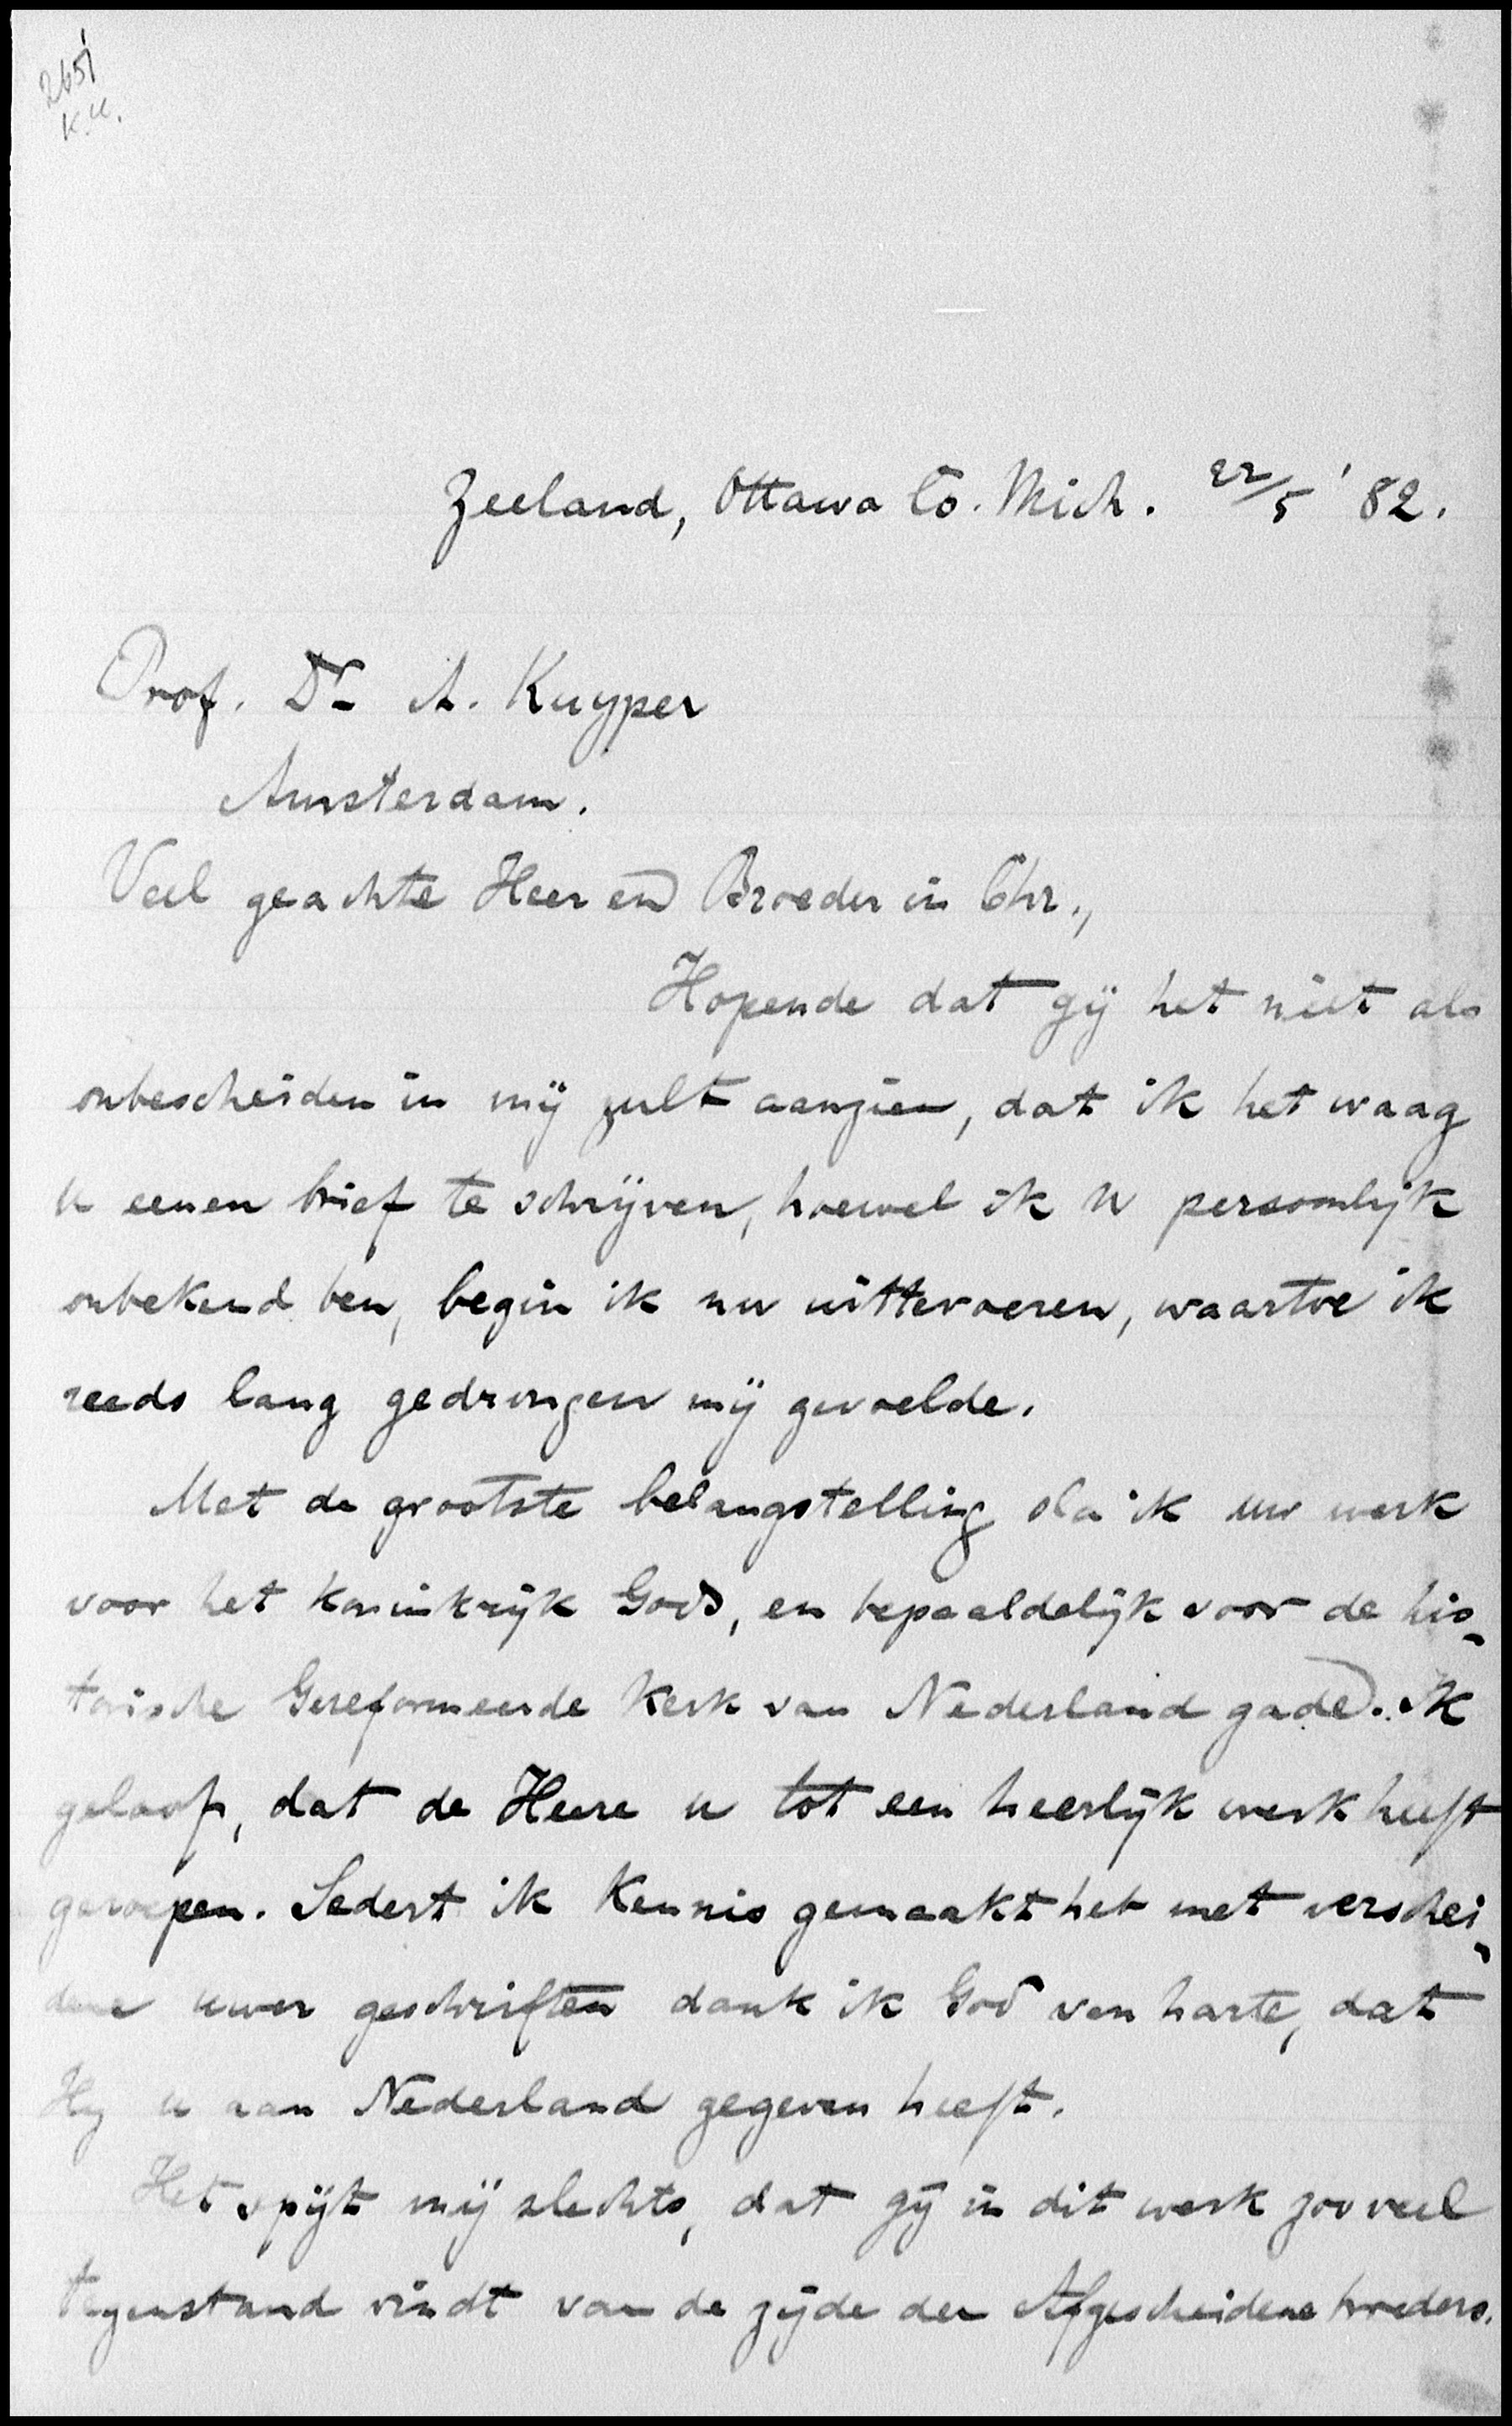 2651
K.U.
Zeeland, Ottawa Co. Mich. 22/5 '82.
Prof. Dr. A. Kuyper
Amsterdam.
Veel geachte Heer en Broeder in Chr.,
Hopende dat gij het niet als
onbescheiden in mij zult aanzien, dat ik het waag
u eenen brief te schrijven, hoewel ik u persoonlijk
onbekend ben, begin ik nu uittevoeren, waartoe ik
reeds lang gedrongen mij gevoelde.
Met de grootste belangstelling sla ik uw werk
voor het koninkrijk Gods, en bepaaldelijk voor de his-
torische Gereformeerde Kerk van Nederland gade. Ik
geloof, dat de Heere u tot een heerlijk werk heeft
geroepen. Sedert ik kennis gemaakt heb met verschei-
dene uwer geschriften dank ik God van harte, dat
Hij u aan Nederland gegeven heeft.
Het spijt mij slechts, dat gij in dit werk zoo veel
tegenstand vindt van de zijde der Afgescheidene broeders.